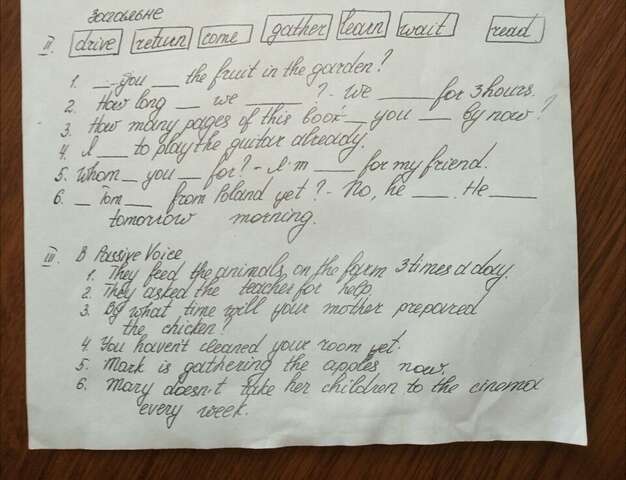 II. drive return come gather learn wait read
1. __ you __ the fruit in the garden?
2. How long __ we ____ ? - We ____ for 3 hours.
3. How many pages of this book __ you __ by now?
4. I __ to play the guitar already.
5. Whom __ you __ for? - I'm ___ for my friend.
6. __ Tom __ from Poland yet? - No, he ___. He ____
tomorrow morning.
III. В Passive Voice
1. They feed the animals on the farm 3 times a day.
2. They asked the teacher for help.
3. By what time will your mother prepared
the chicken?
4 You haven't cleaned your room yet.
5. Mark is gathering the apples now.
6. Mary doesn't take her children to the cinema
every week.